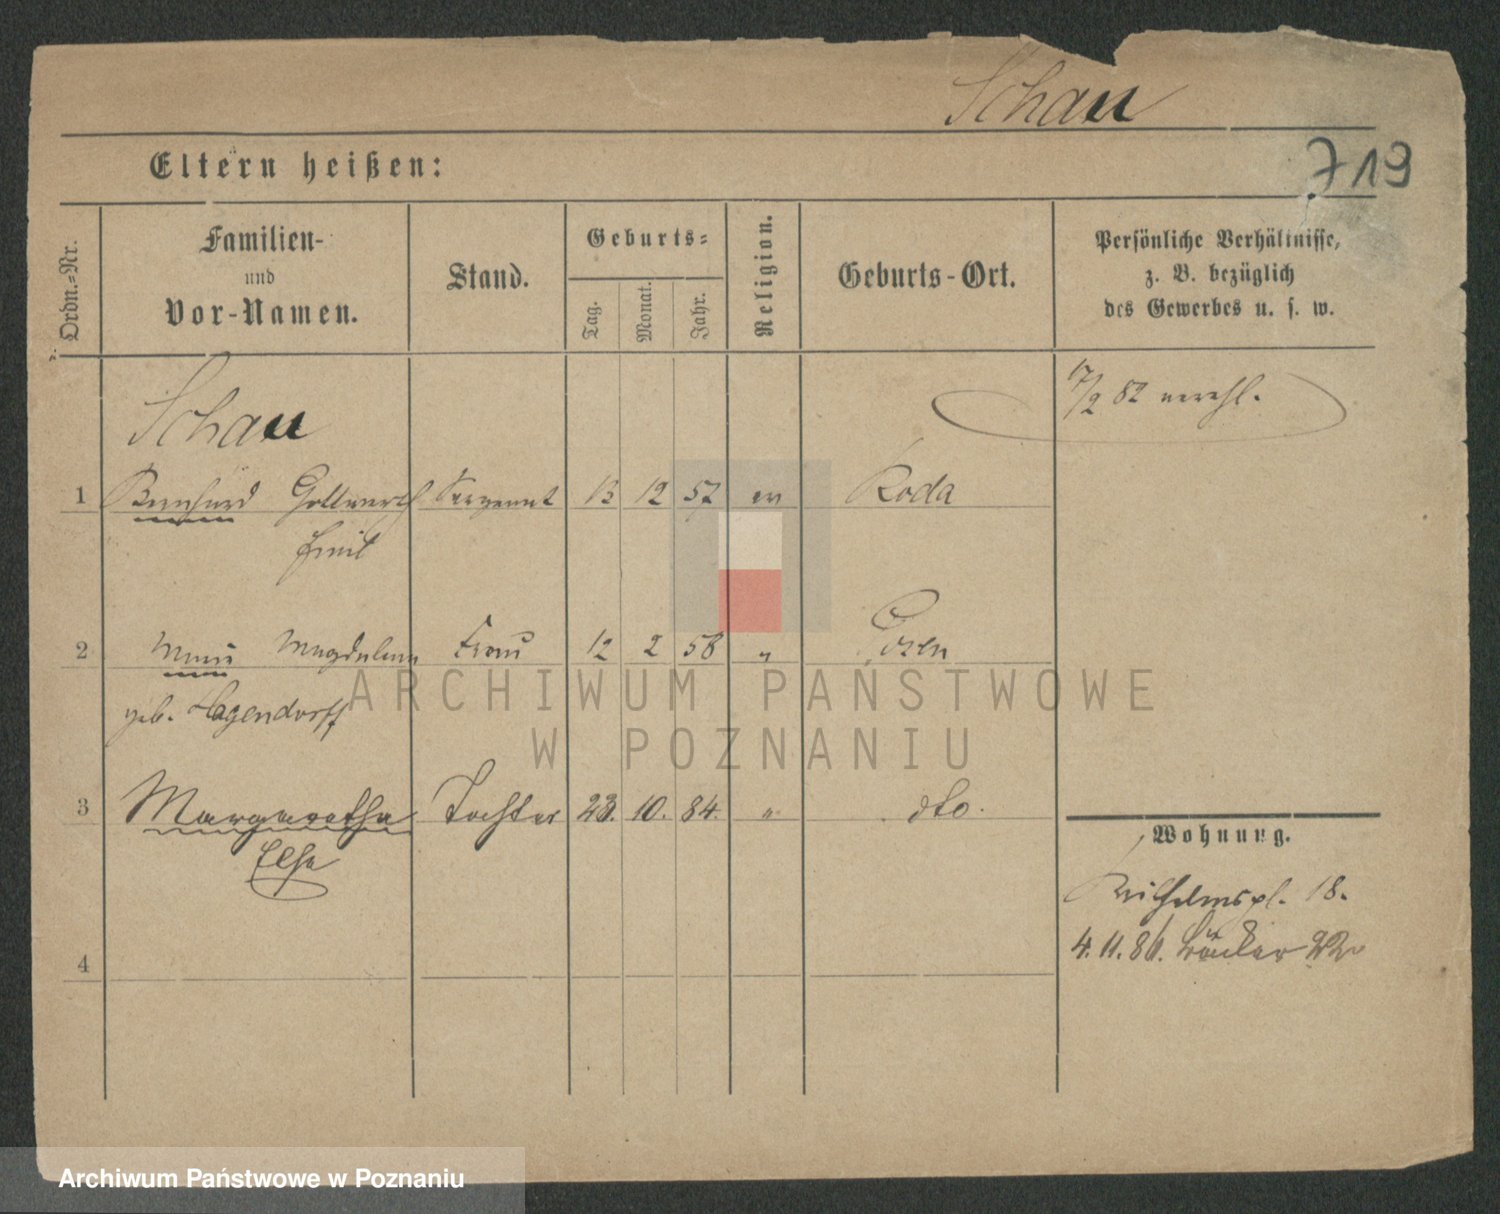 Schau
719
Eltern heißen:
Ordn.-Nr.
Familien-
und
Vor-Namen.
Stand.
Geburts-
Tag.
Monat.
Jahr.
Religion.
Geburts-Ort.
Persönliche Verhältnisse,
z. B. bezüglich
des Gewerbes u. s. w.
17/2 82 verehl.
Schau
1 Bernhard Gottwerth Sergeant 13 12 57 ev Roda
Emil
2 Marie Magdalena Frau 12 2 58 " Posen
geb. Hagendorff
3 Margaretha Tochter 10. 84. " dto.
Else
4
Wohnung.
Wilhelmspl. 18.
4. 11. 86.
ARCHIWUM PAŃSTWOWE
W POZNANIU
Archiwum Państwowe w Poznaniu